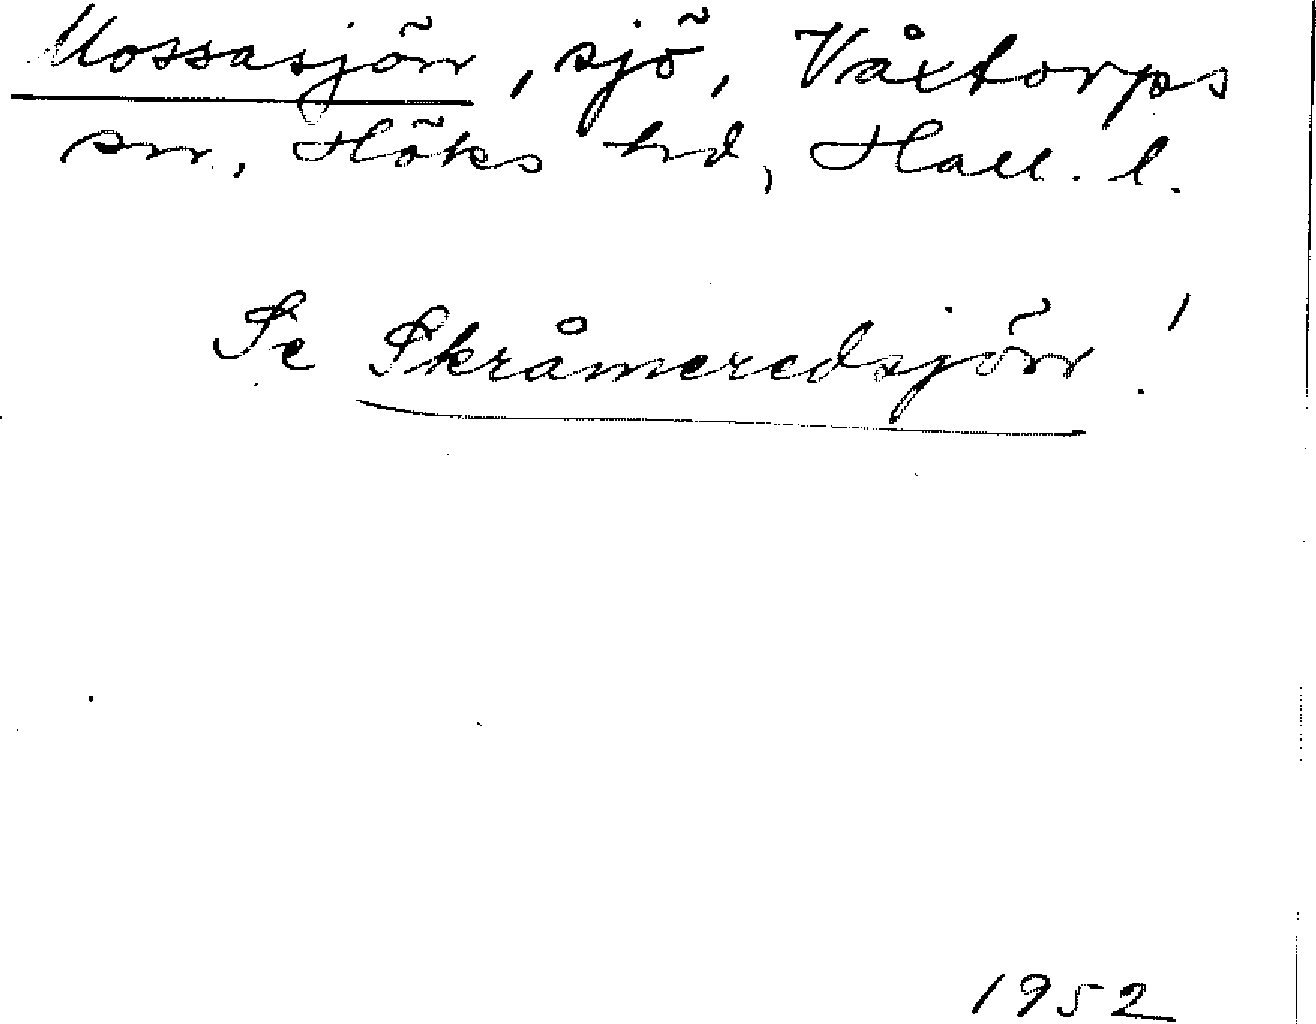 Mossasjön, sjö, Våxtorps
sn, Höks hd, Hall. l.
Se Skråmeredsjön!
1952